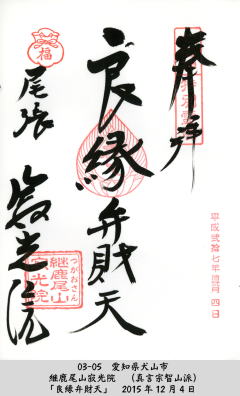 奉拝
良縁弁財天
尾張
寂光院
福
つがおさん
継鹿尾山
寂光院
03-05 愛知県犬山市
継鹿尾山寂光院 (真言宗智山派)
「良縁弁財天」 2015年12月4日